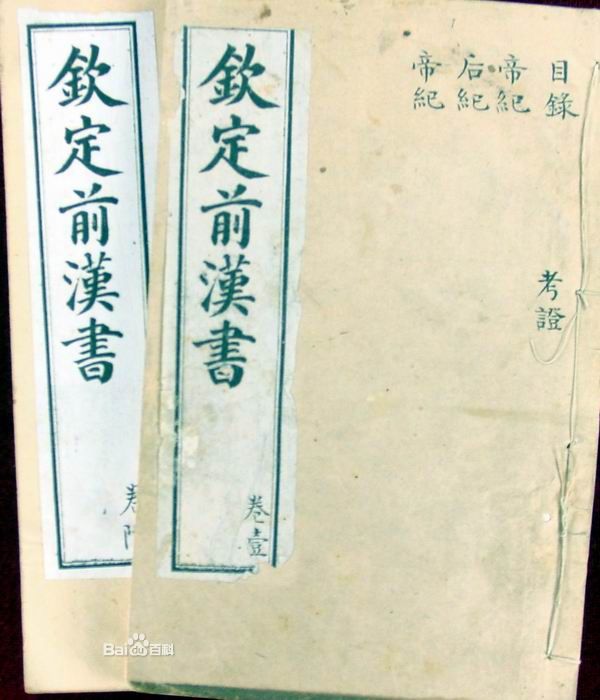 目錄
考證
帝紀
后紀
帝紀
欽定前漢書
卷壹
欽定前漢書
卷
Baidu百科